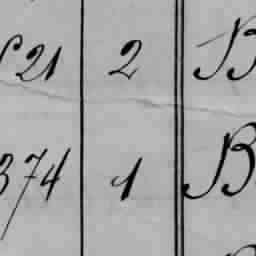 21 2 B
374 1 B